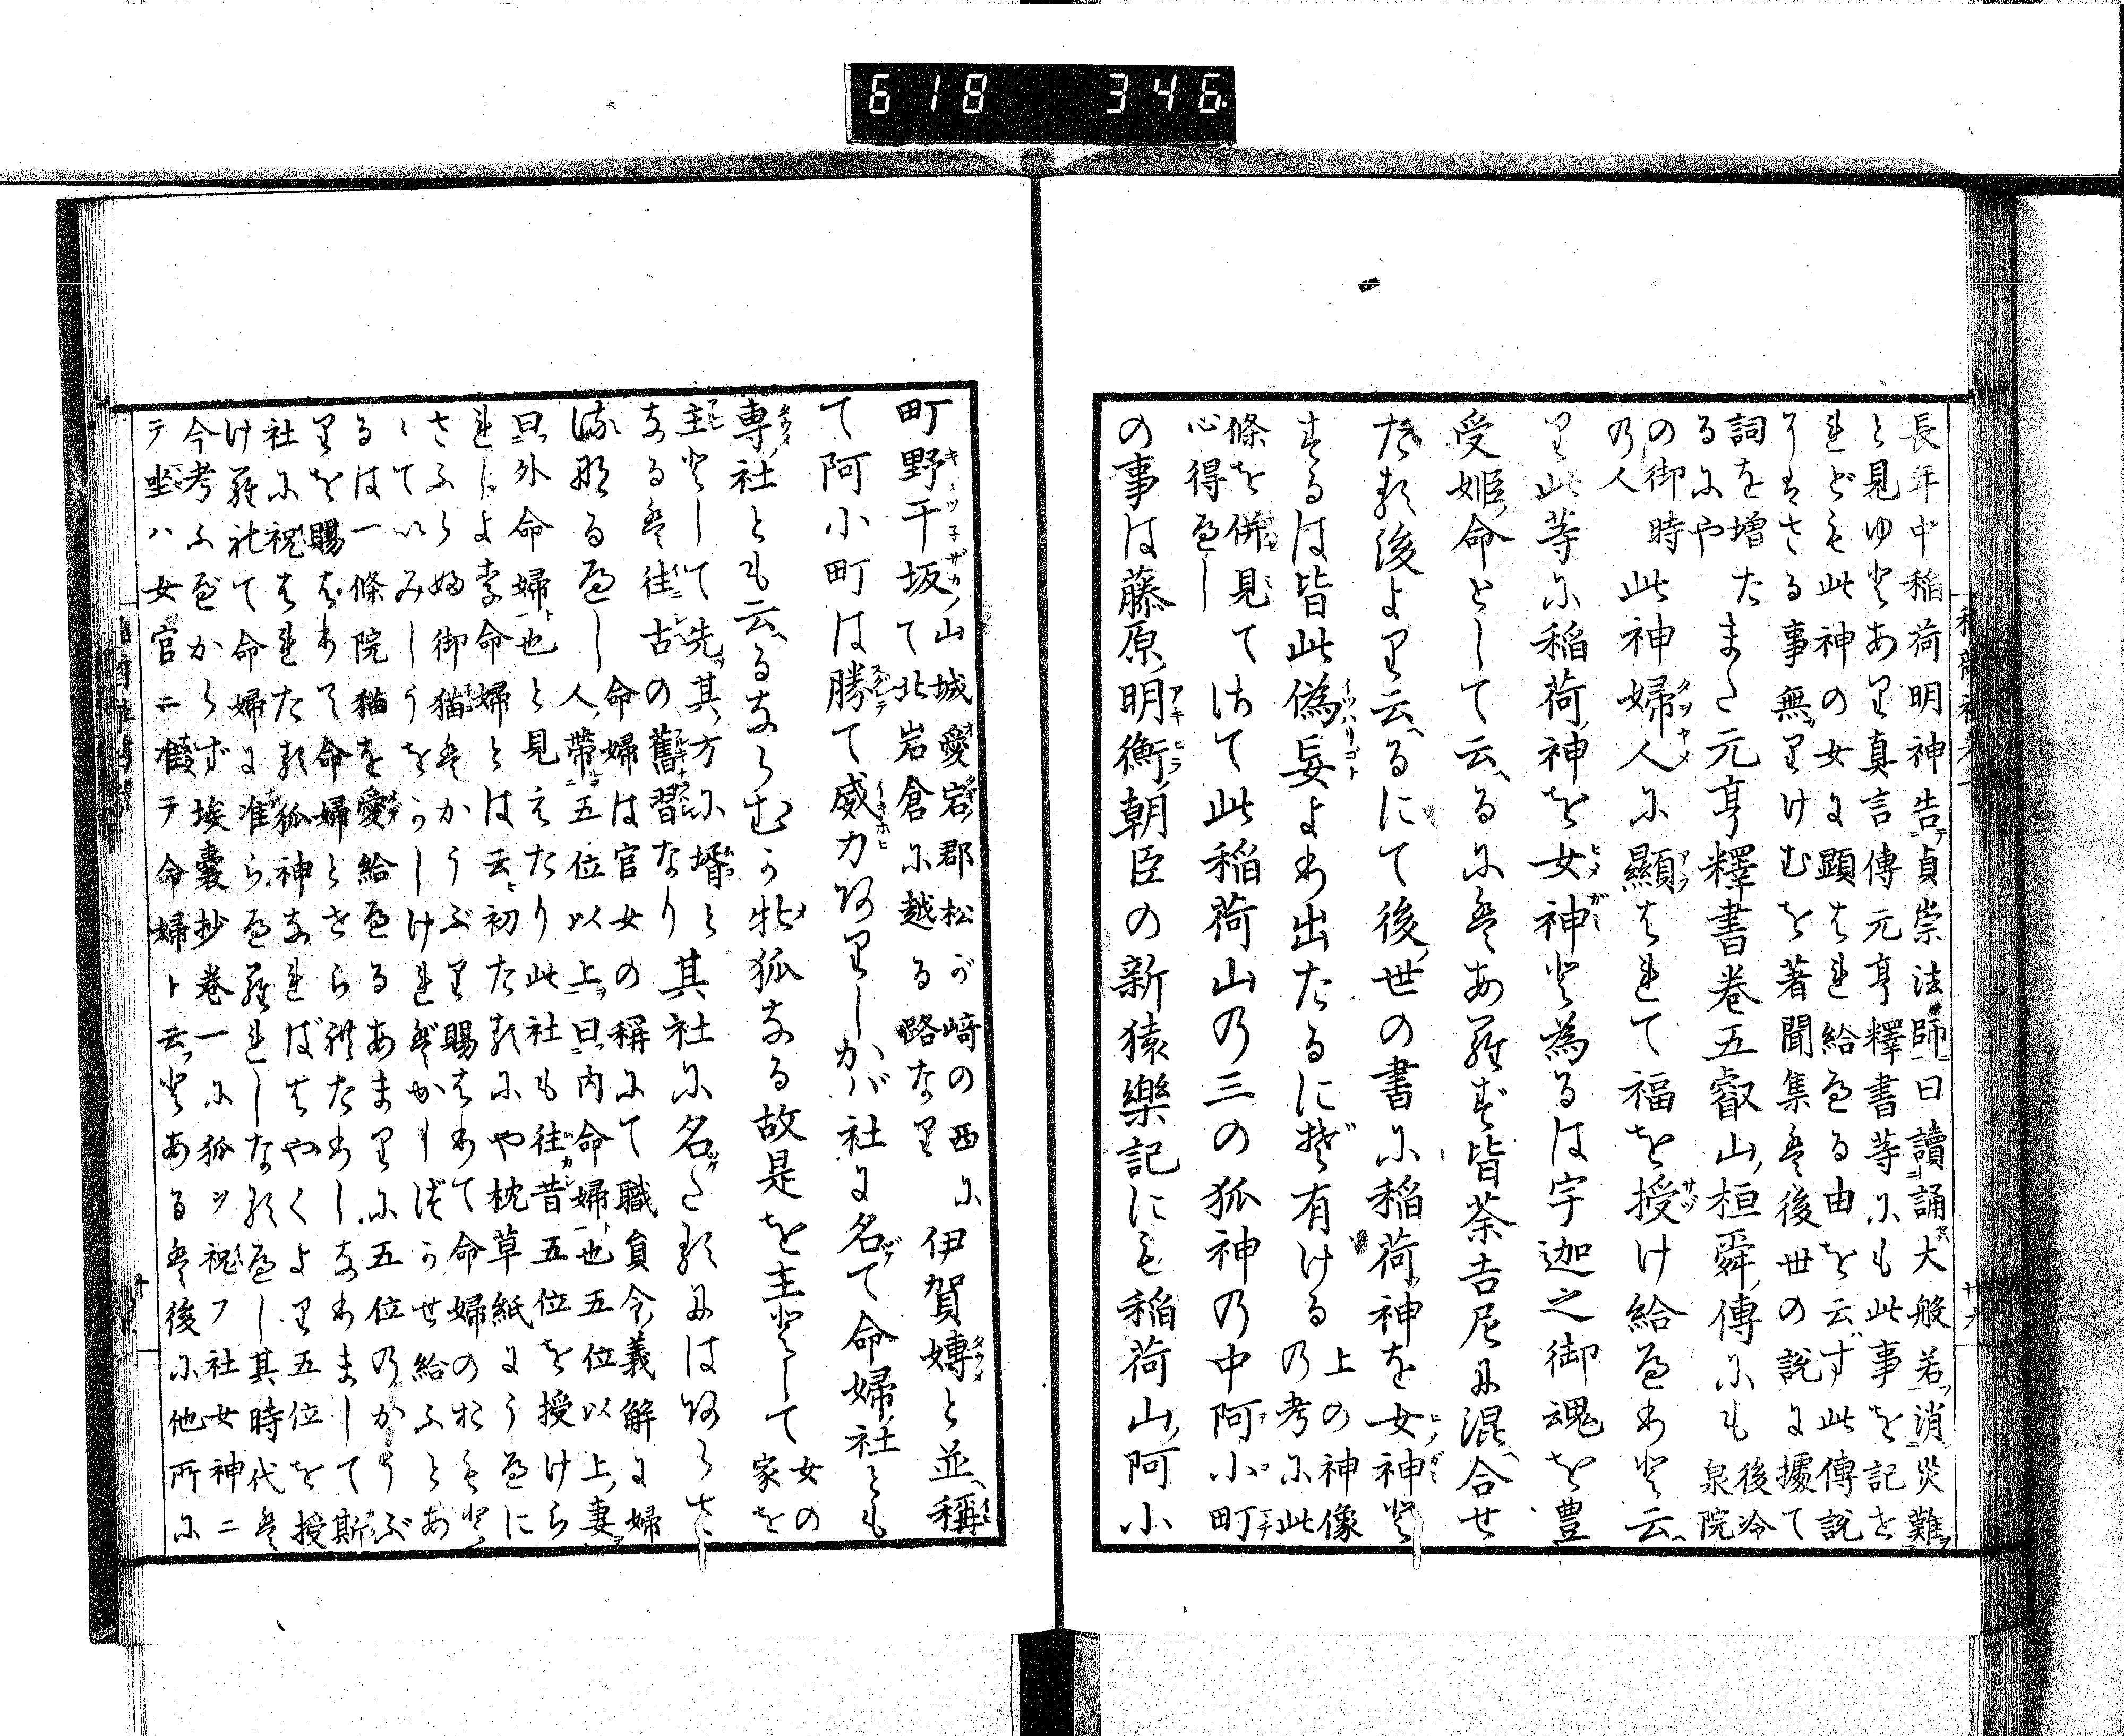 618 346
長年中稲荷明神告テ貞崇法師ニ曰讀誦シテ大般若ヲ消災難ヲ
と見ゆとあり真言傳元亨釋書等にも此事を記せ
れども此神の女に顕はれ給へる由を云ず此傳説
はさる事無りけむを著聞集は後世の説に據て
詞を増た
るにや
また元亨釋書巻五叡山桓舜傳にも
後冷
泉院
の御時
の人
此神婦人に顯はれて福を授け給へりと云
り此等に稲荷神を女神と為るは宇迦之御魂を豊
受姫命として云るにはあらず皆荼吉尼に混合せ
たる後より云るにて後世の書に稲荷神を女神と
するは皆此偽妄より出たるにぞ有ける
上の神像
の考に此
條を併見て
心得べし
さて此稲荷山の三の狐神の中阿小町
の事は藤原明衡朝臣の新猿樂記にも稲荷山阿小
町野干坂
山城愛宕郡松が﨑の西に
て北岩倉に越る路なり
伊賀専と並稱
て阿小町は勝て威力ありしかバ社に名て命婦社とも
専社とも云るならむか牝狐なる故是を主として
女の
家を
主として先其方に壻と
なるは往古の舊習なり
其社に名たるにはあらさ
るべし
命婦は官女の稱にて職員令義解に婦
人帯五位以上曰内命婦也五位以上妻
曰外命婦也と見えたり此社も往昔五位を授けら
れしより命婦とは云初たるにや枕草紙にうへに
さふらふ御猫はかうぶり賜はりて命婦のおもと
ゝていみしうをかしけれはかしづかせ給ふとあ
るは一條院猫を愛給へるあまりに五位のかうぶ
りを賜はりて命婦とさへられたりしなりまして斯
社に祝はれたる狐神なればはやくより五位を授
けられて命婦に准らへられしなるべし其時代は
今考ふべからず埃嚢抄巻一に狐ヲ祝フ社女神ニ
テ坐ハ女官ニ准テ命婦ト云とあるは後に他所に